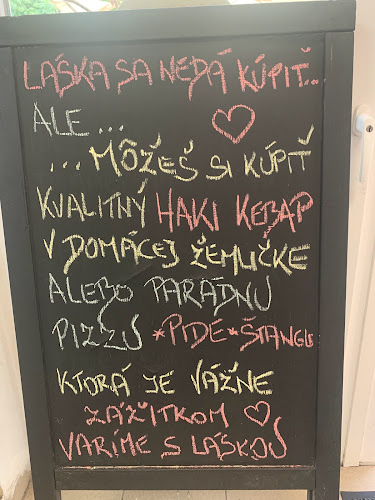 LÁSKA SA NEDÁ KÚPIŤ...
ALE...
... MÔŽEŠ SI KÚPIŤ
KVALITNÝ HAKI KEBAP
V DOMÁCEJ ŽEMLIČKE
ALEBO PARÁDNU
PIZZU *PIDE*ŠTANGLE
KTORÁ JE VÁŽNE
ZÁŽITKOM
VARÍME S LÁSKOU